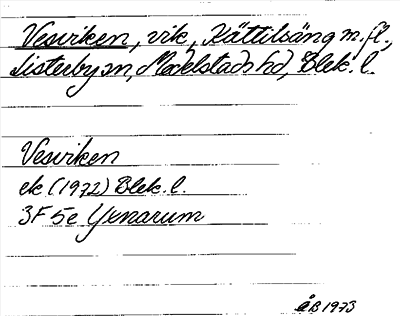 Vesviken, vik, Kättilsäng m.fl.,
Listerby sn, Medelstads hd, Blek. l.
Vesviken
ek (1972) Blek. l.
3F 5e Yxnarum
ÅB 1973